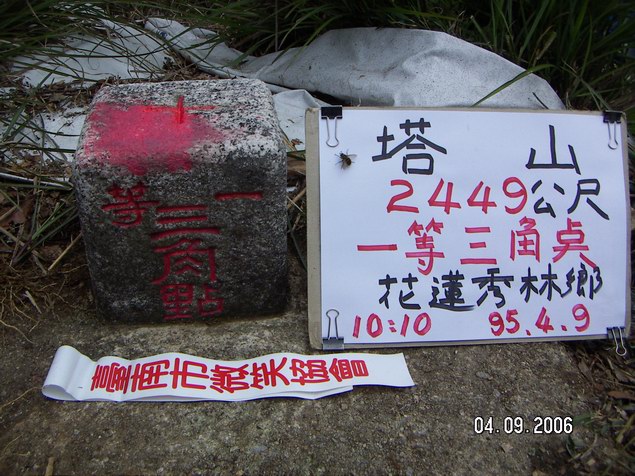 一等
三角點
塔山
2449公尺
一等三角点
花蓮秀林鄉
10:10 95.4.9
臺南市微笑協會
04.09.2006